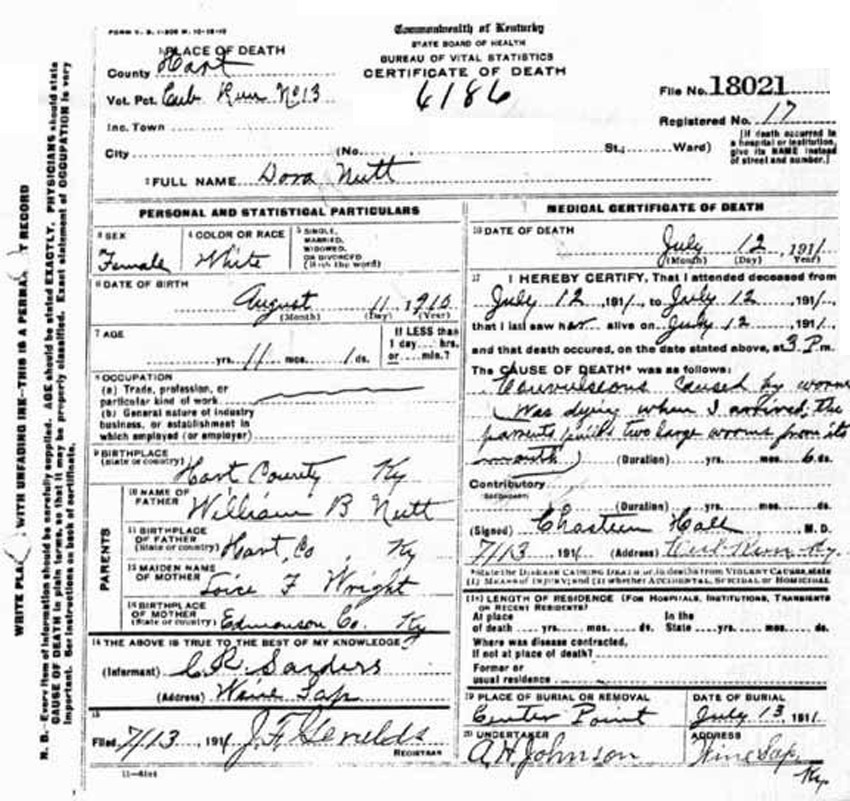 FORM V. S. 1-
Commonwealth of Kentucky
STATE BOARD OF HEALTH
BUREAU OF VITAL STATISTICS
CERTIFICATE OF DEATH
1 PLACE OF DEATH
County Hart
Vot. Pct. Cub Run No 13
Inc. Town
City (No. St.; Ward)
6186
File No. 18021
Registered No. 17
[If death occurred in
a hospital or institution,
give its NAME instead
of street and number.]
2 FULL NAME Dora Nutt
PERSONAL AND STATISTICAL PARTICULARS
3 SEX
Female
4 COLOR OR RACE
White
5 SINGLE,
MARRIED,
WIDOWED,
OR DIVORCED
(Write the word)
6 DATE OF BIRTH
August 11, 1910
(Month) (Day) (Year)
7 AGE
yrs. 11 mos. 1 ds.
If LESS than
1 day ... hrs.
or ... min.?
8 OCCUPATION
(a) Trade, profession, or
particular kind of work
(b) General nature of industry
business, or establishment in
which employed (or employer)
9 BIRTHPLACE
(State or country)
Hart County Ky
PARENTS
10 NAME OF
FATHER
William B Nutt
11 BIRTHPLACE
OF FATHER
(State or country)
Hart, Co Ky
12 MAIDEN NAME
OF MOTHER
F Wright
13 BIRTHPLACE
OF MOTHER
(State or country)
Edmonson Co. Ky
14 THE ABOVE IS TRUE TO THE BEST OF MY KNOWLEDGE
(Informant) C R Sanders
(Address) Wine Sap
15
Filed 7/13, 1911 J. F.
REGISTRAR
11-
MEDICAL CERTIFICATE OF DEATH
16 DATE OF DEATH
July 12, 1911
(Month) (Day) (Year)
17 I HEREBY CERTIFY, That I attended deceased from
July 12, 1911, to July 12 191
that I last saw her alive on July 12 191
and that death occured, on the date stated above, at 3 P m.
The CAUSE OF DEATH* was as follows:
Convulseons caused by worms
(Was dying when I arrived; the
parents two large worms from its
mouth) (Duration) yrs. mos. 6 ds.
Contributory
(SECONDARY)
(Duration) yrs. mos. ds.
(Signed) Chasteen Hall M. D.
7/13 1911 (Address) Ky.
*State the DISEASE CAUSING DEATH or, in deaths from VIOLENT CAUSES, state
(1) MEANS OF INJURY; and (2) whether ACCIDENTAL, SUICIDAL OR HOMICIDAL
18 LENGTH OF RESIDENCE (FOR HOSPITALS, INSTITUTIONS, TRANSIENTS
OR RECENT RESIDENTS)
At place In the
of death yrs. mos. ds. State yrs. mos. ds.
Where was disease contracted,
If not at place of death?
Former or
usual residence
19 PLACE OF BURIAL OR REMOVAL
Center Point
DATE OF BURIAL
July 13, 1911
20 UNDERTAKER
A H Johnson
ADDRESS
Wine Sap,
Ky.
WRITE PLA WITH UNFADING INK—THIS IS A PERMA T RECORD
N. B.—Every item of information should be carefully supplied. AGE should be stated EXACTLY. PHYSICIANS should state
CAUSE OF DEATH in plain terms, so that it may be properly classified. Exact statement of OCCUPATION is very
important. See instructions on back of certificate.